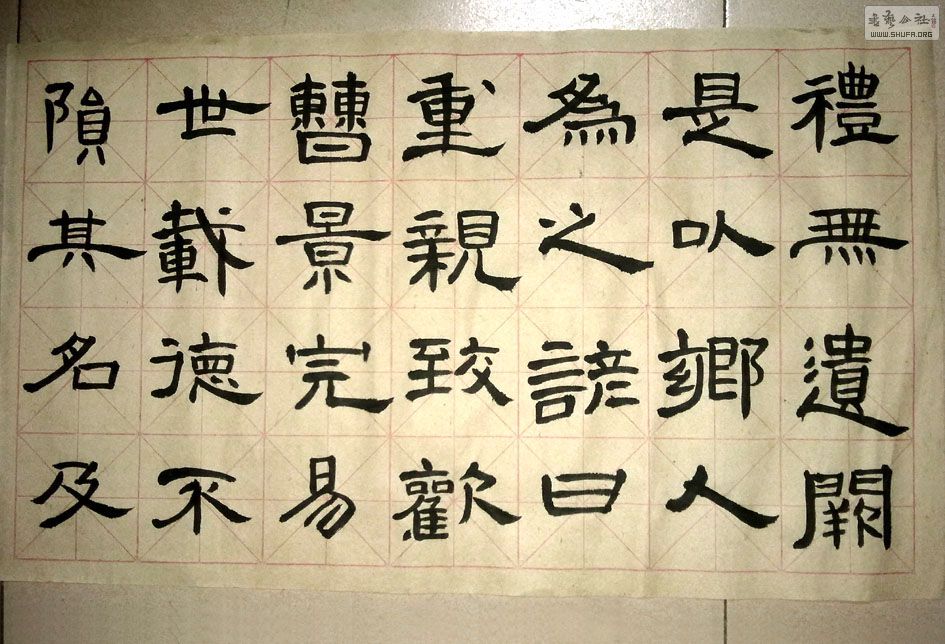 禮無遺闕
是以鄉人
為之諺曰
重親致歡
曹景完易
世載德不
隕其名及
WWW.SHUFA.ORG